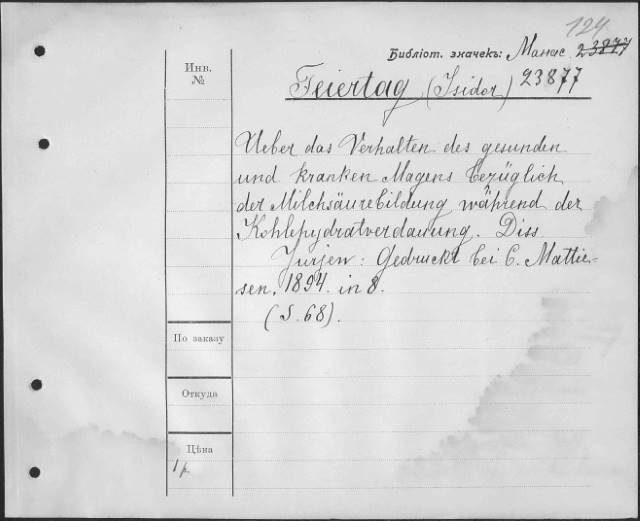 124
Библіот. значекъ: Манас 23877
Инв.
№
Feiertag (Isidor) 23877
Ueber das Verhalten des gesunden
und kranken Magens bezüglich
der Milchsäurebildung während der
Kohlehydratverdauung. Diss.
Jurjew: Gedruckt bei C. Mattie-
sen, 1894. in 8.
(S. 68).
По заказу
Откуда
Цѣна
1 р.